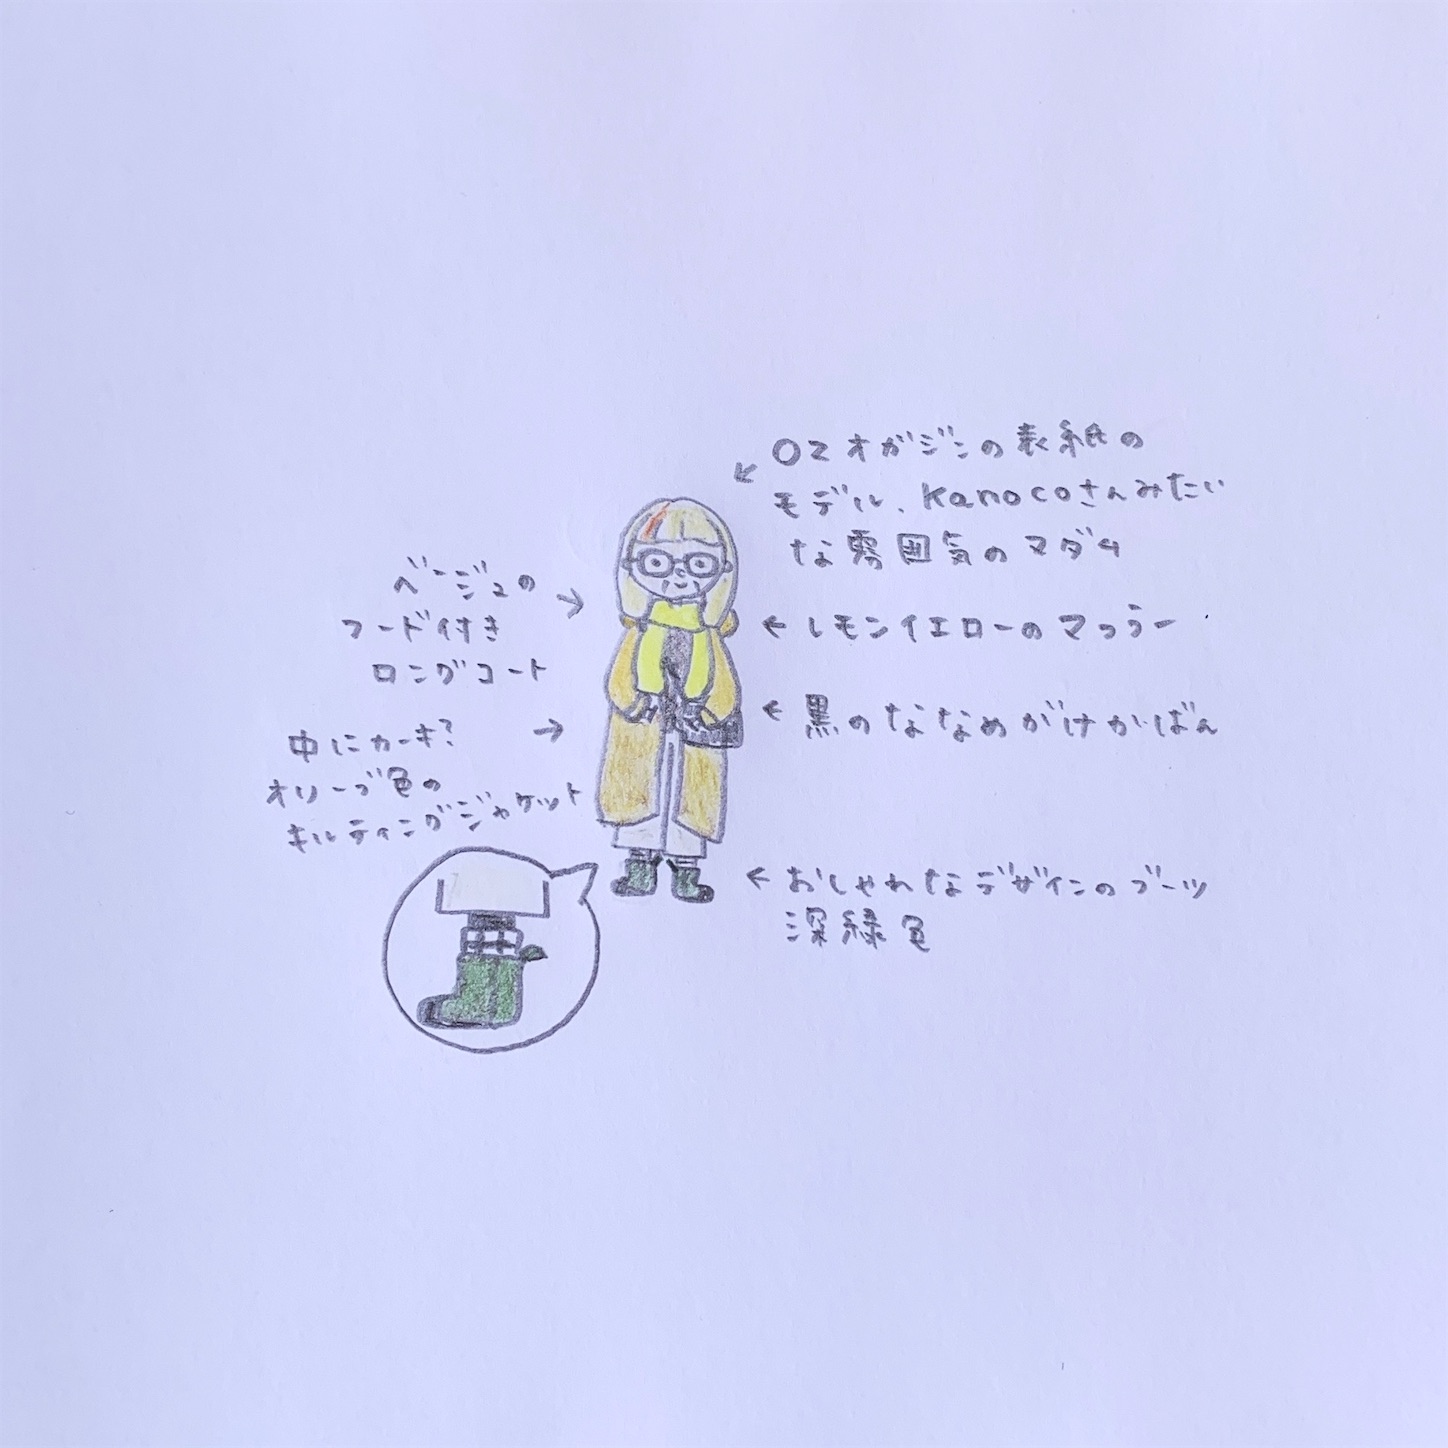 OZオガジンの表紙の
モデル、kanocoさんみたい
な雰囲気のマダム
ベージュの
フード付き
ロングコート
レモンイエローのマフラー
黒のななめがけかばん
中にカーキ?
オリーブ色の
キルティングジャケット
おしゃれなデザインのブーツ
深緑色